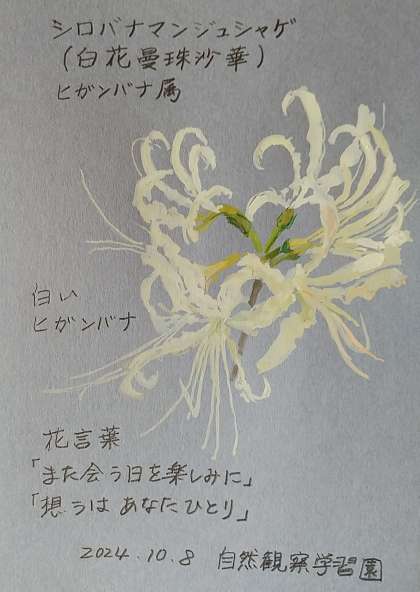 シロバナマンジュシャゲ
(白花曼珠沙華)
ヒガンバナ属
白い
ヒガンバナ
花言葉
「また会う日を楽しみに」
「想うは あなたひとり」
2024.10.8 自然観察学習園